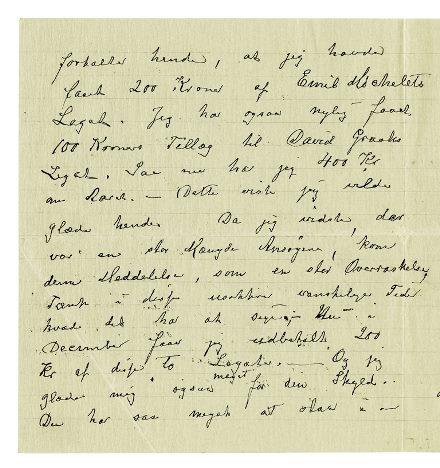 fortalte hende, at jeg havde
faaet 200 Kroner af Emil
Legat. Jeg har ogsaa nylig faaet
100 Kroners Tillæg til David
Legat. Saa nu har jeg 400 Kr
om Aaret. — Dette vist jeg vilde
glæde hende. Da jeg vidste, der
var en stor Mængde Ansøgere, kom
denne Meddelelse, som en stor Overraskelse,
Tænk i disse vanskelige Tider
hvad det har at sige, — Nu i
December faar jeg udbetalt 200
Kr af disse to Legater. — Og jeg
glæder mig meget ogsaa for din Skyld.
Du har saa meget at